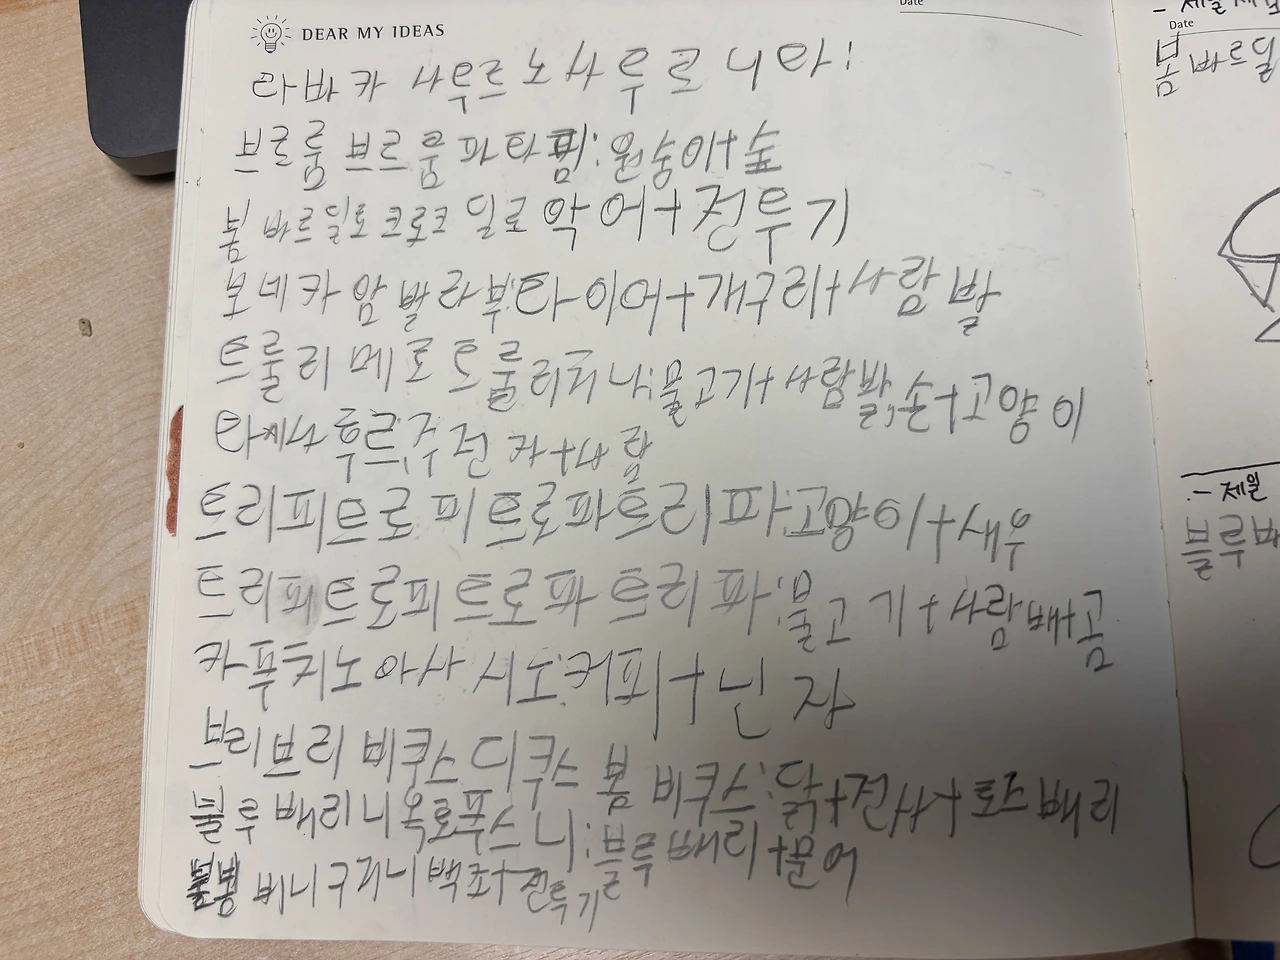 DEAR MY IDEAS
Date
라바카 사투르노사투르로니타:
브르룸 브르룸 파타핌:원숭이+숲
봄바르딜로 크로코딜로 악어+전투기
보네카 암발라부:타이어+개구리+사람 발
트룰리메로 트룰리치나:물고기+사람발,손+고양이
라까사 후르:주전자+사람
트리피트로피트로파트리파:고양이+새우
트리피트로피트로파트리파:물고기+사람배+곰
카푸치노 아사시노:커피+닌자
브리브리 비쿠스 디쿠스 봄 비쿠스:닭+전사+토스배리
블루배리니 옥토푸스니:블루배리+문어
봄봉비니 구지니 백조+전투기
Date
봄빠르딜
- 제일
블루배